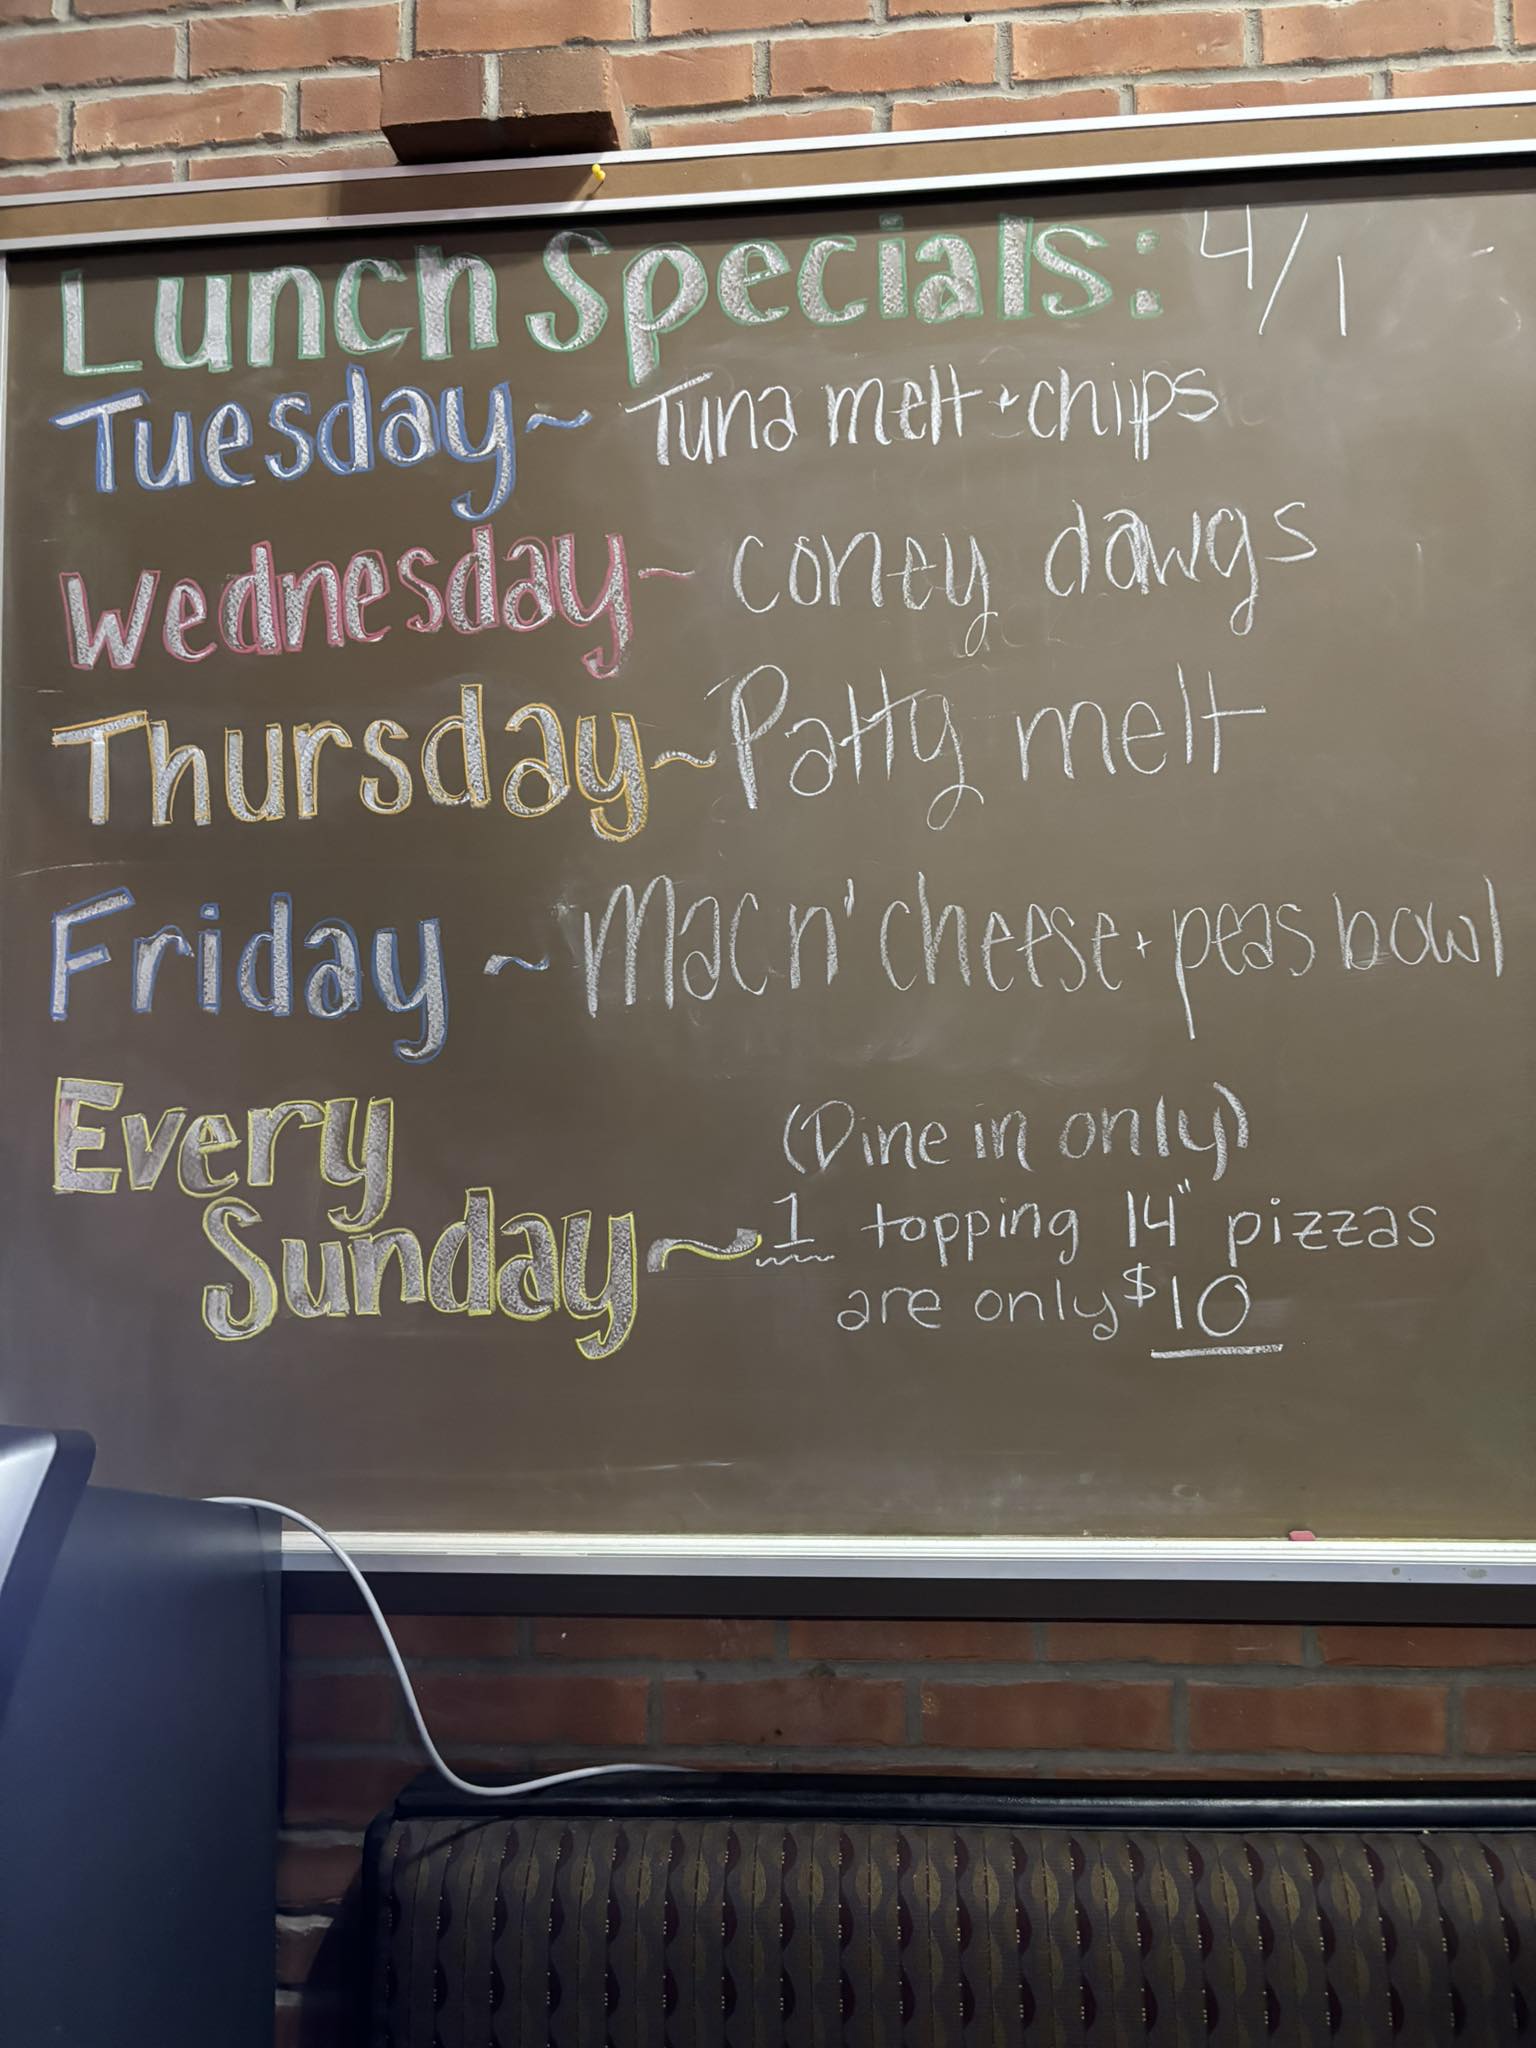 Lunch Specials: 4/1
Tuesday~ Tuna melt + chips
Wednesday~ coney dawgs
Thursday~ Patty melt
Friday ~ Mac n' cheese + peas bowl
Every
Sunday~ (Dine in only)
1 topping 14" pizzas
are only $10